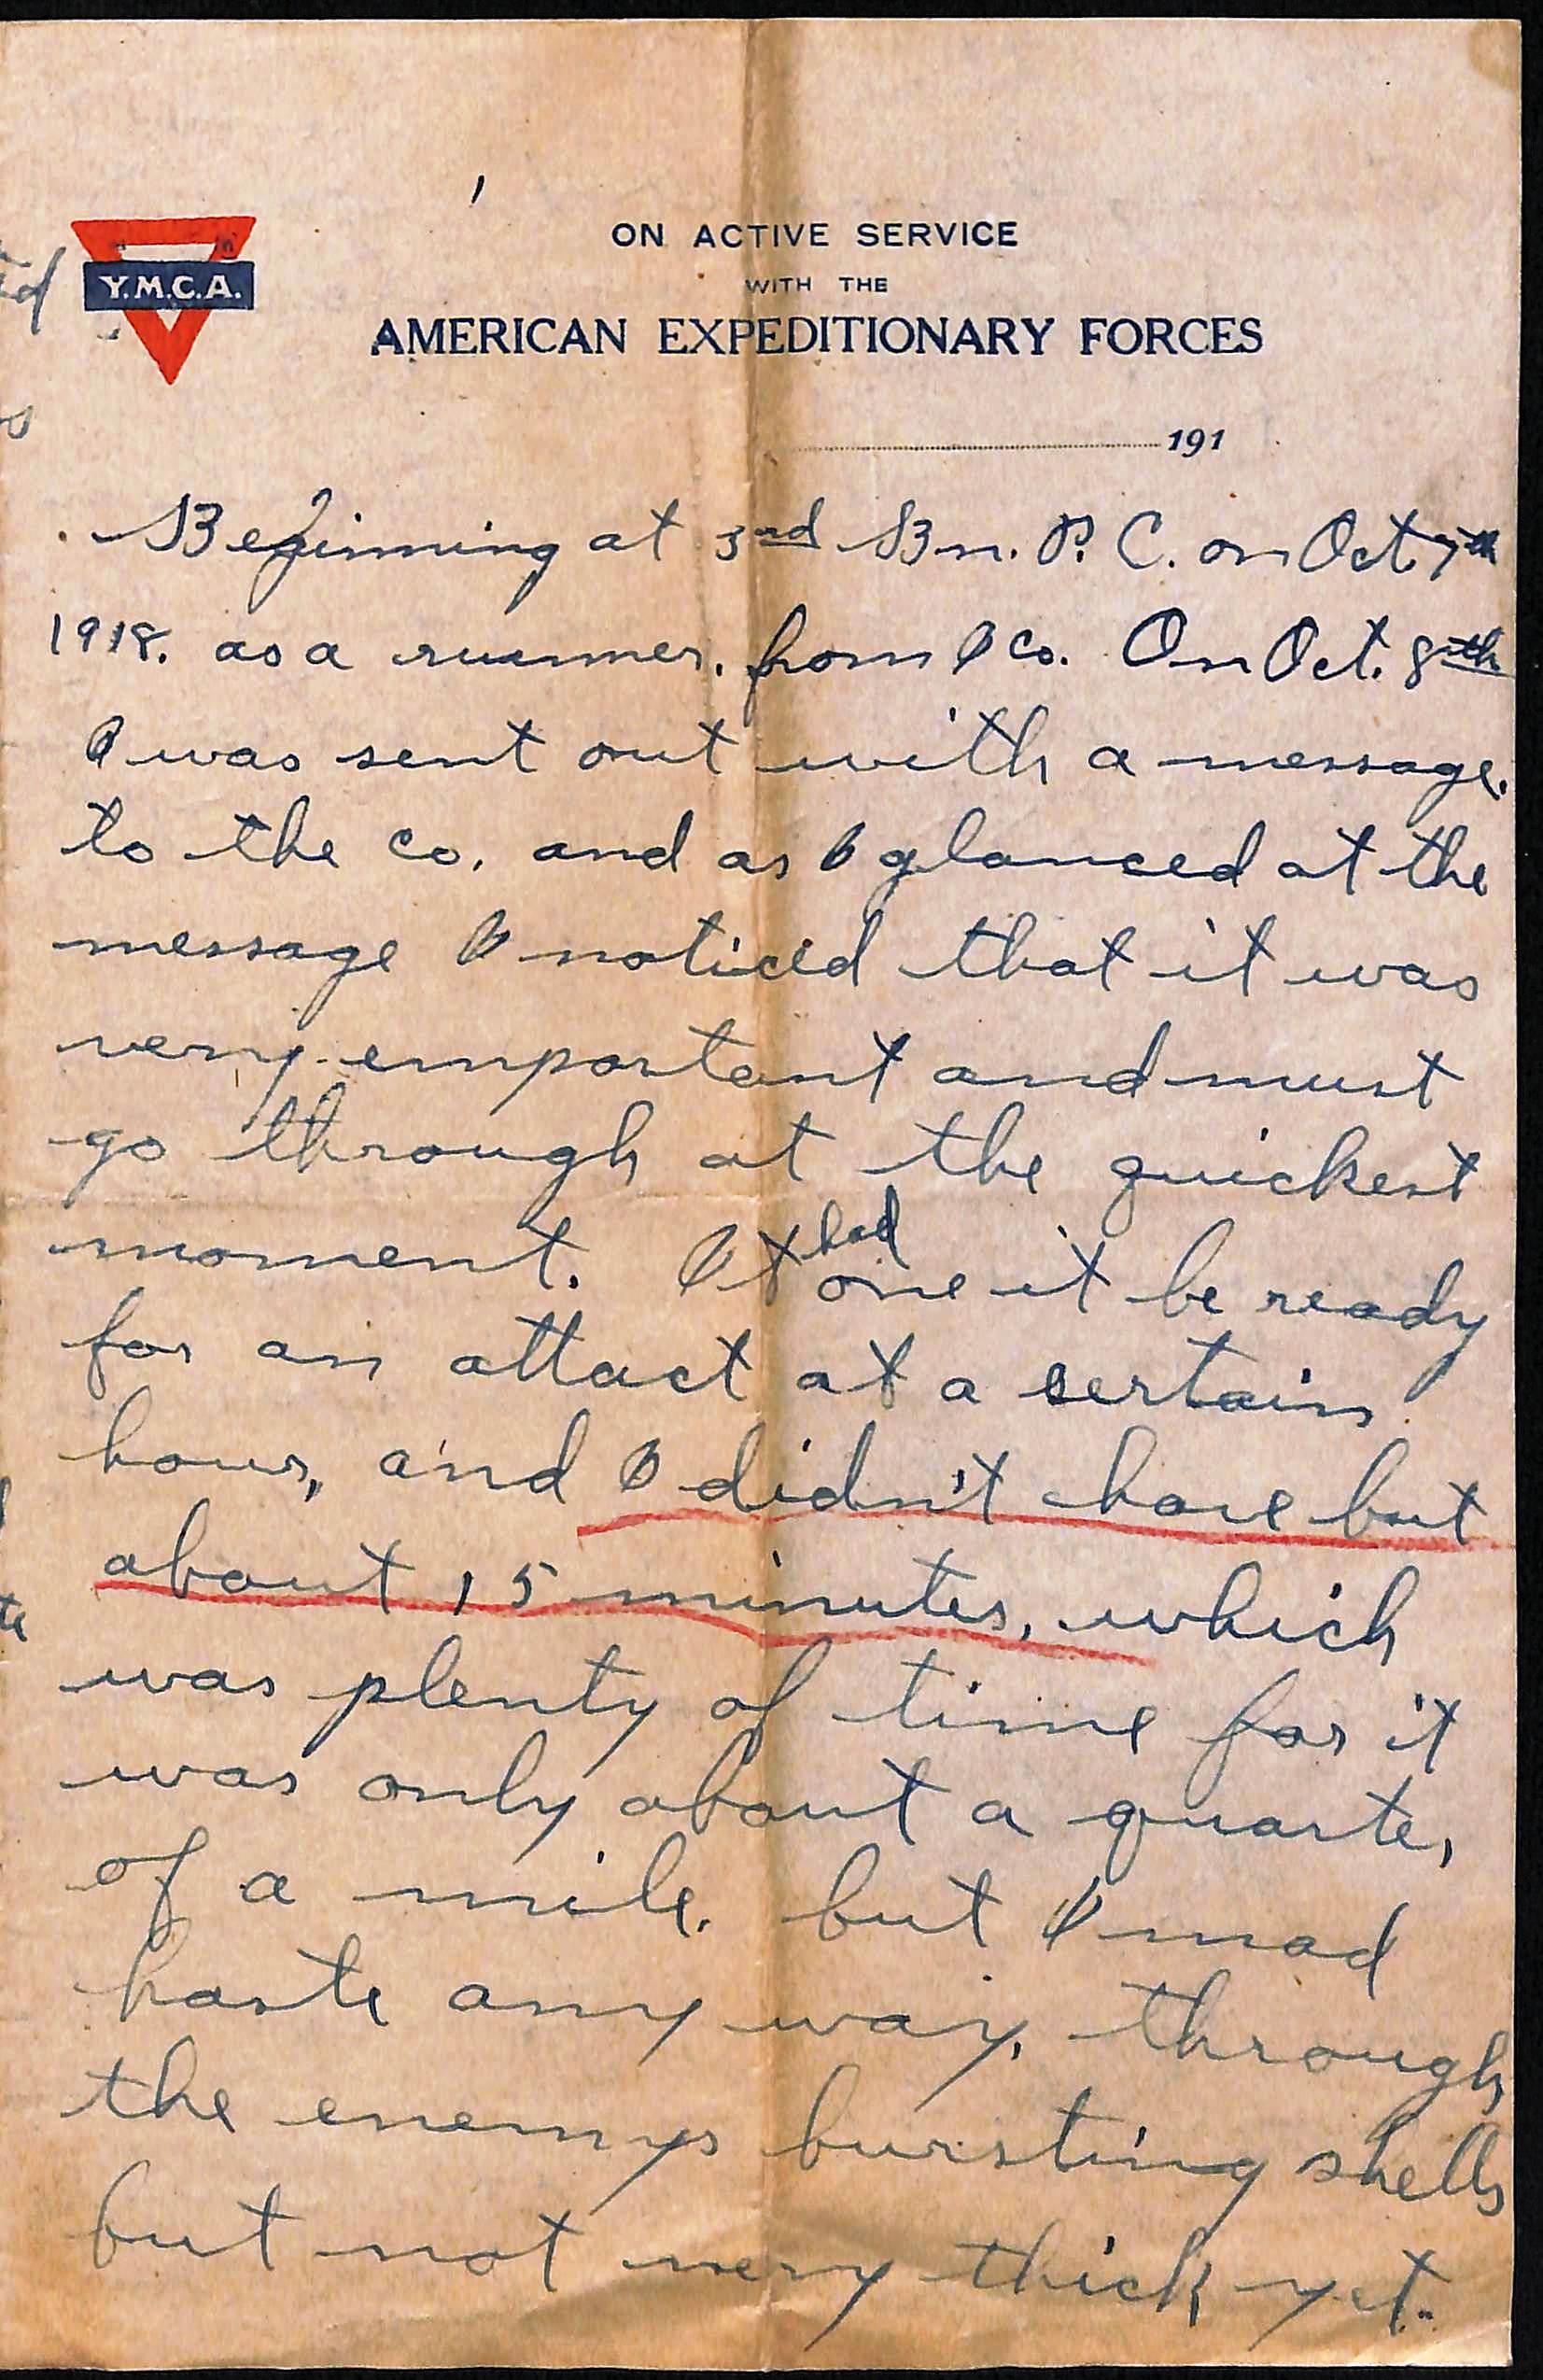 ON ACTIVE SERVICE
WITH THE
AMERICAN EXPEDITIONARY FORCES
Y.M.C.A.
191
Beginning at 3rd Bn. P. C. on Oct. 7th
1918. as a runner. from I co. On Oct. 8th
I was sent out with a message.
to the co. and as I glanced at the
message I noticed that it was
very emportant and must
go through at the quickest
moment. It had one it be ready
for an attact at a sertain
hour, and I didn't have but
about 15 minutes, which
was plenty of time for it
was only about a quarter
of a mile. but I mad
haste any way, through
the enemys bursting shells
but not very thick yet.